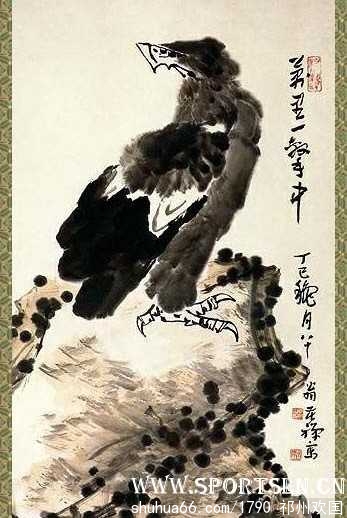 萬里一擊中
丁巳月八十
翁苦禪寫
WWW.SPORTSEN.CN
shuhua66.com/1790 祁州欢国